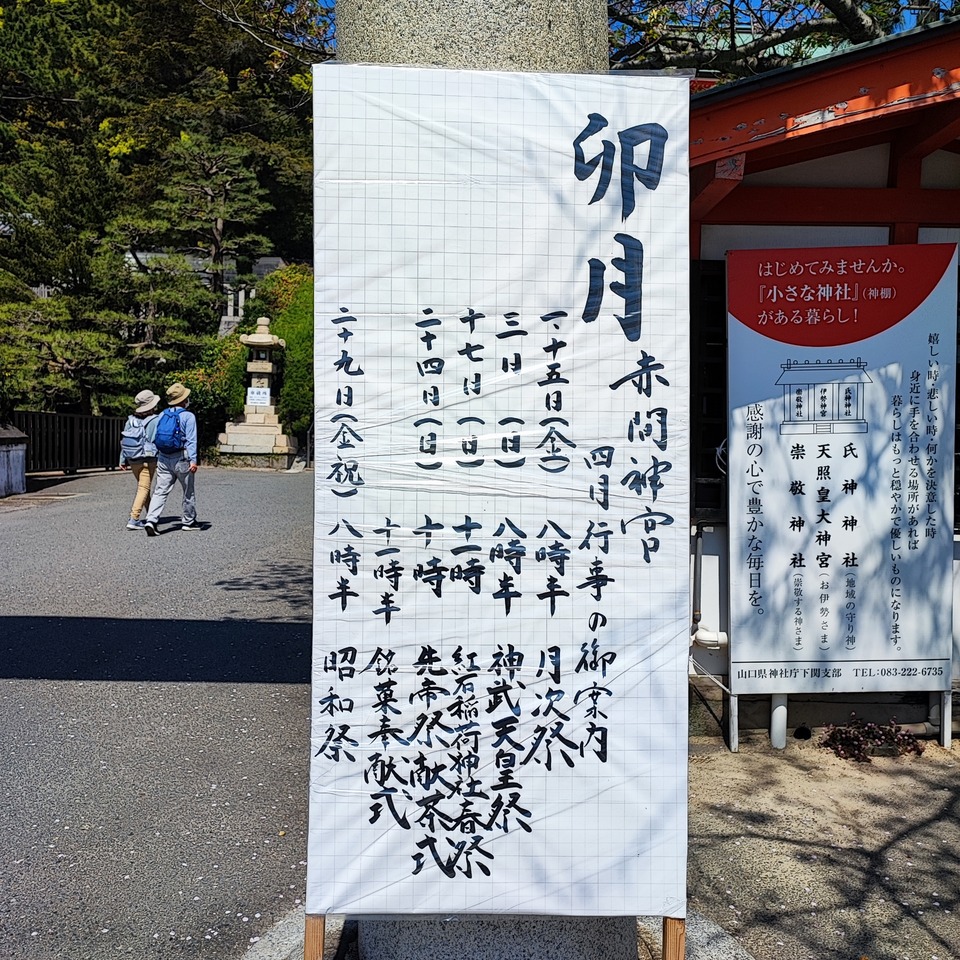 卯月
赤間神宮
四月行事の御案内
一、十五日(金) 八時半 月次祭
三日(日) 八時半 神武天皇祭
十七日(日) 十一時 紅石稲荷神社春祭
二十四日(日) 十時 先帝祭献茶式
十一時半 銘菓奉献式
二十九日(金、祝) 八時半 昭和祭
はじめてみませんか。
『小さな神社』(神棚)
がある暮らし!
嬉しい時・悲しい時・何かを決意した時
身近に手を合わせる場所があれば
暮らしはもっと穏やかで優しいものになります。
氏神神社
伊勢神宮
崇敬神社
氏神神社(地域の守り神)
天照皇大神宮(お伊勢さま)
崇敬神社(崇敬する神さま)
感謝の心で豊かな毎日を。
山口県神社庁下関支部 TEL:083-222-6735